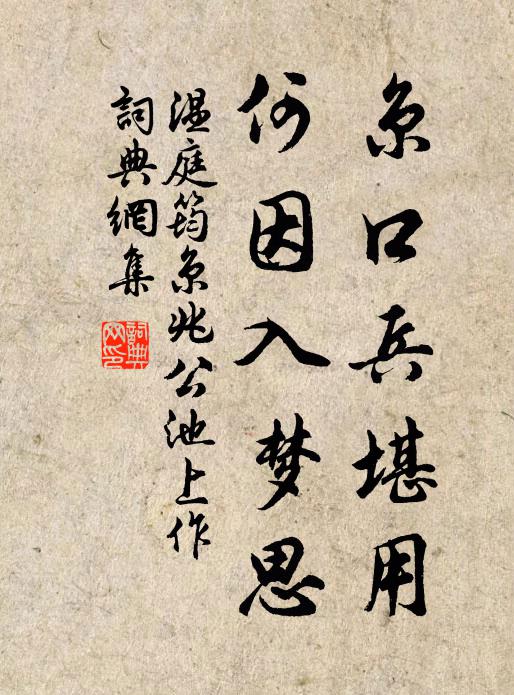 京口兵堪用
何因入梦思
温庭筠京兆公池上作
詞典網集
詞典網印